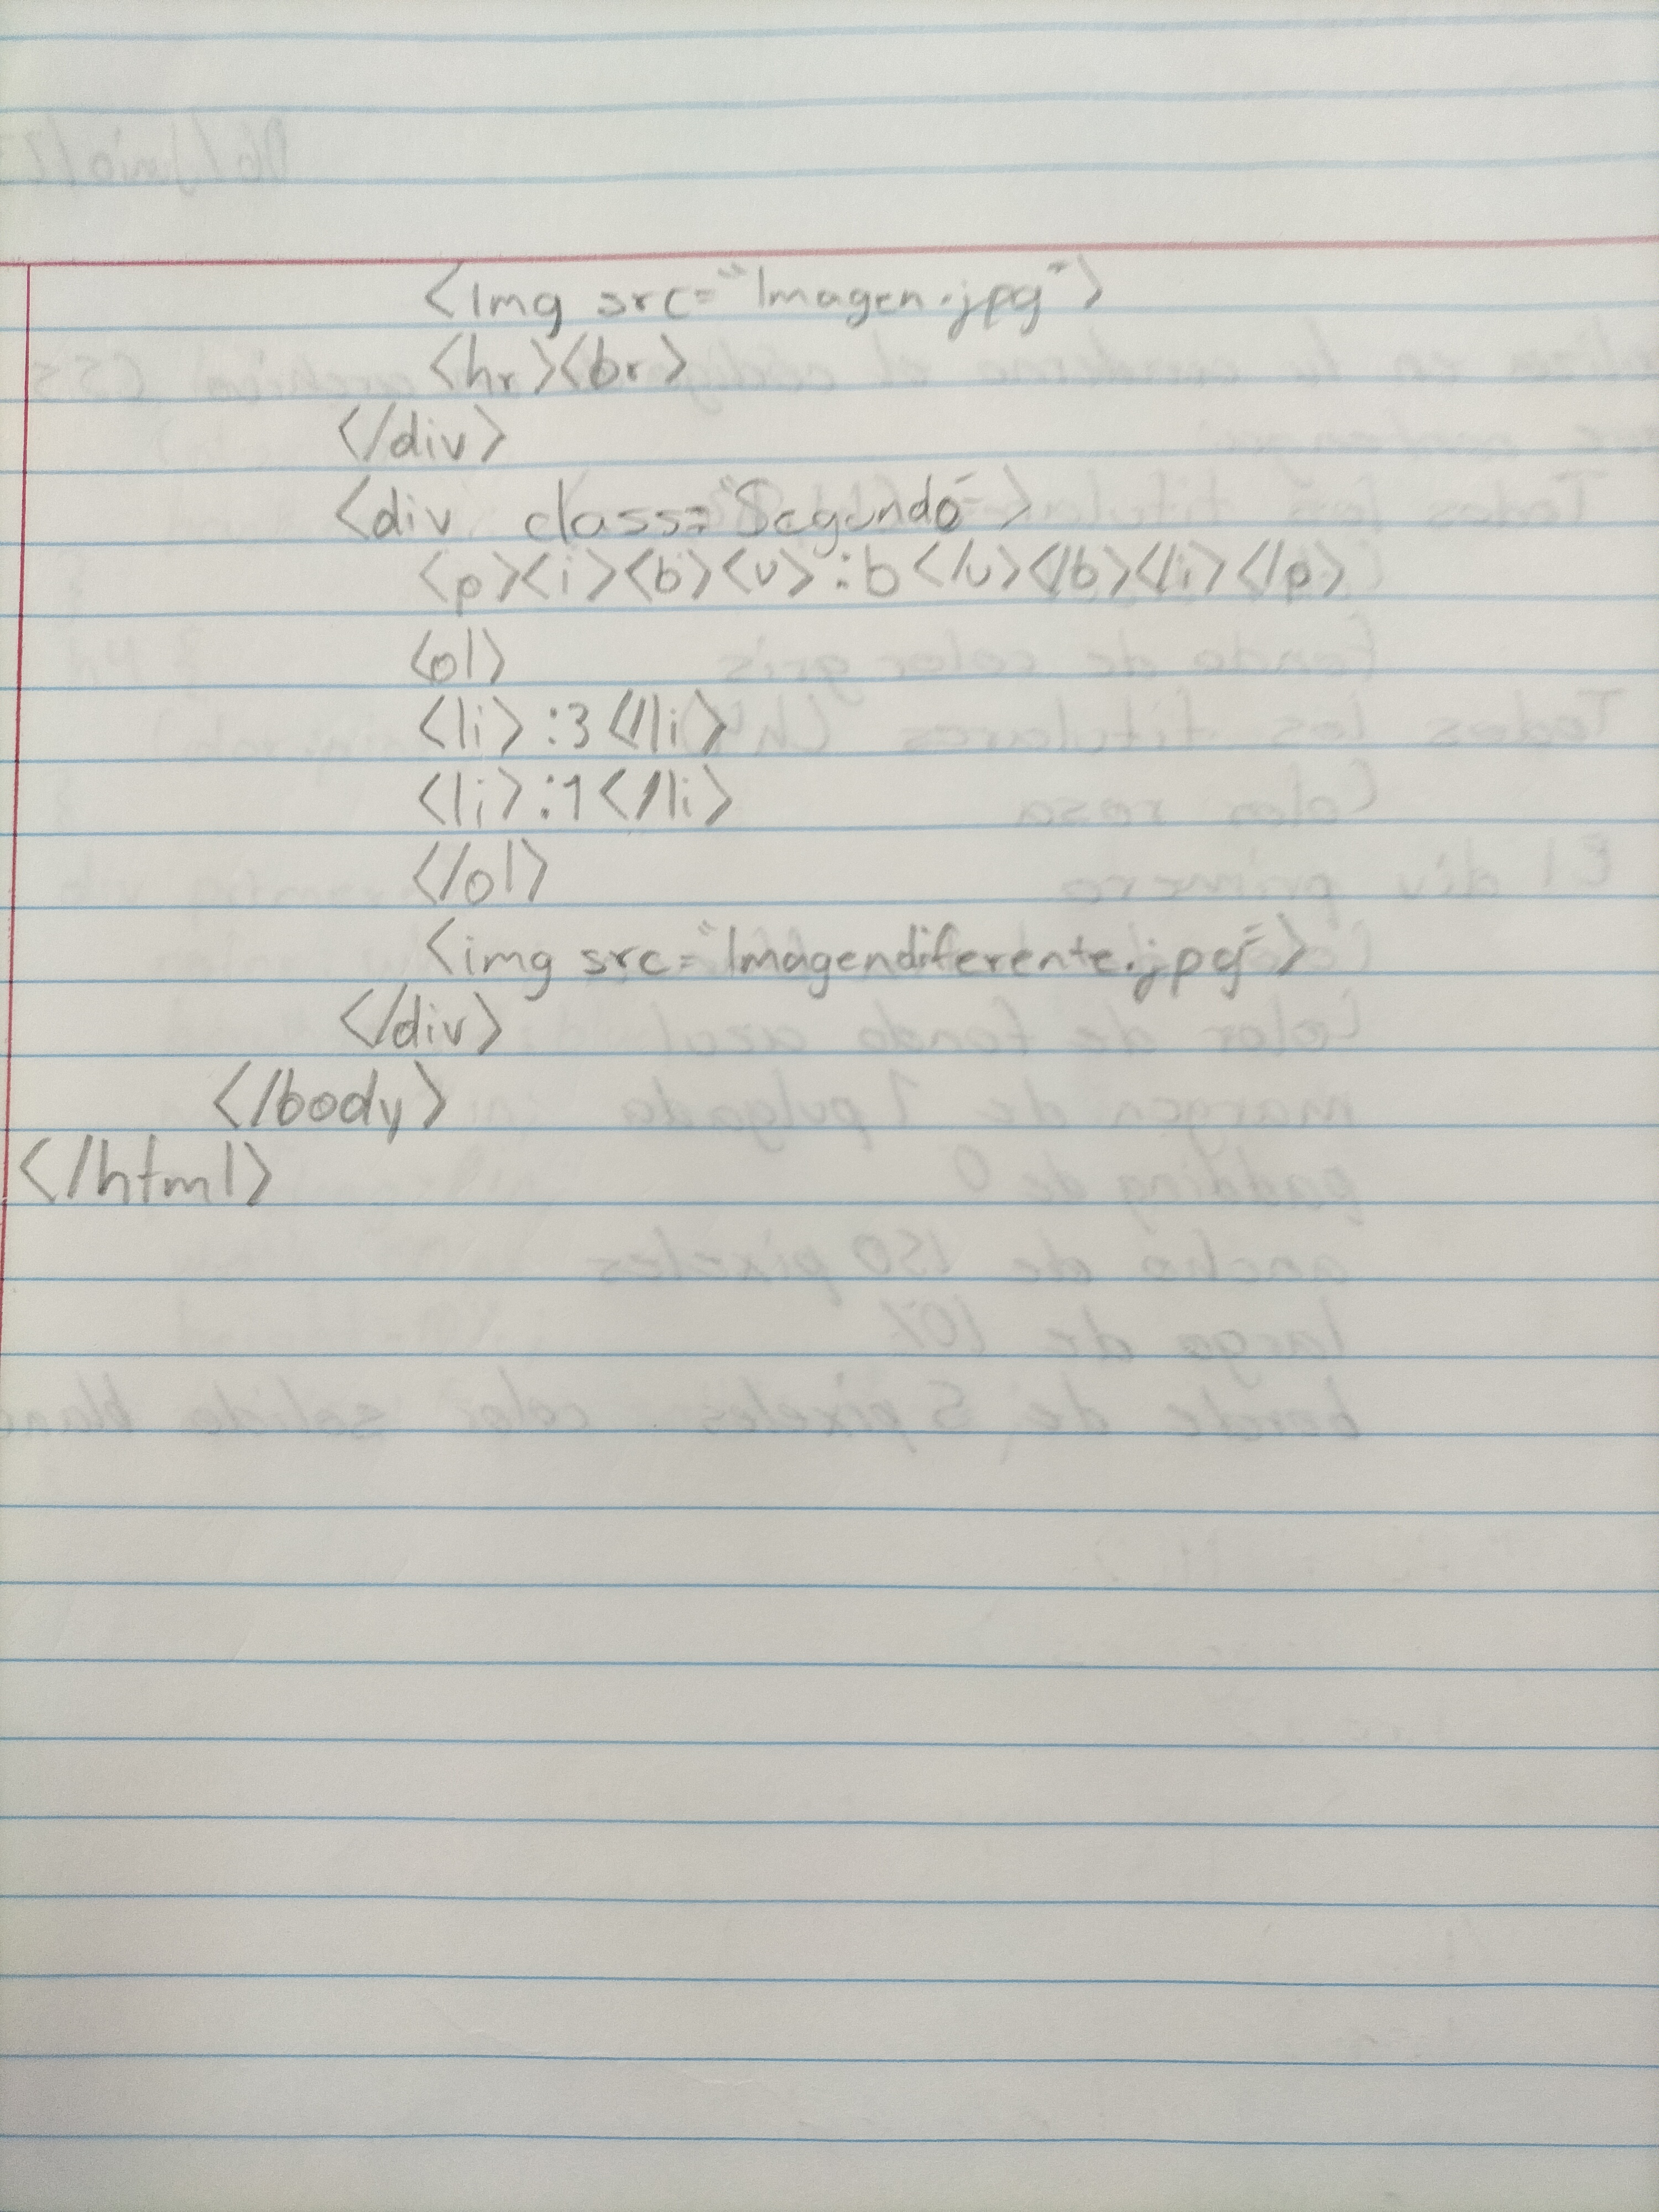 <img src="Imagen.jpg">
<hr><br>
</div>
<div class="Segundo">
<p><i><b><u>:b</u></b></i></p>
<ol>
<li>:3</li>
<li>:1</li>
</ol>
<img src="Imagendiferente.jpg">
</div>
</body>
</html>